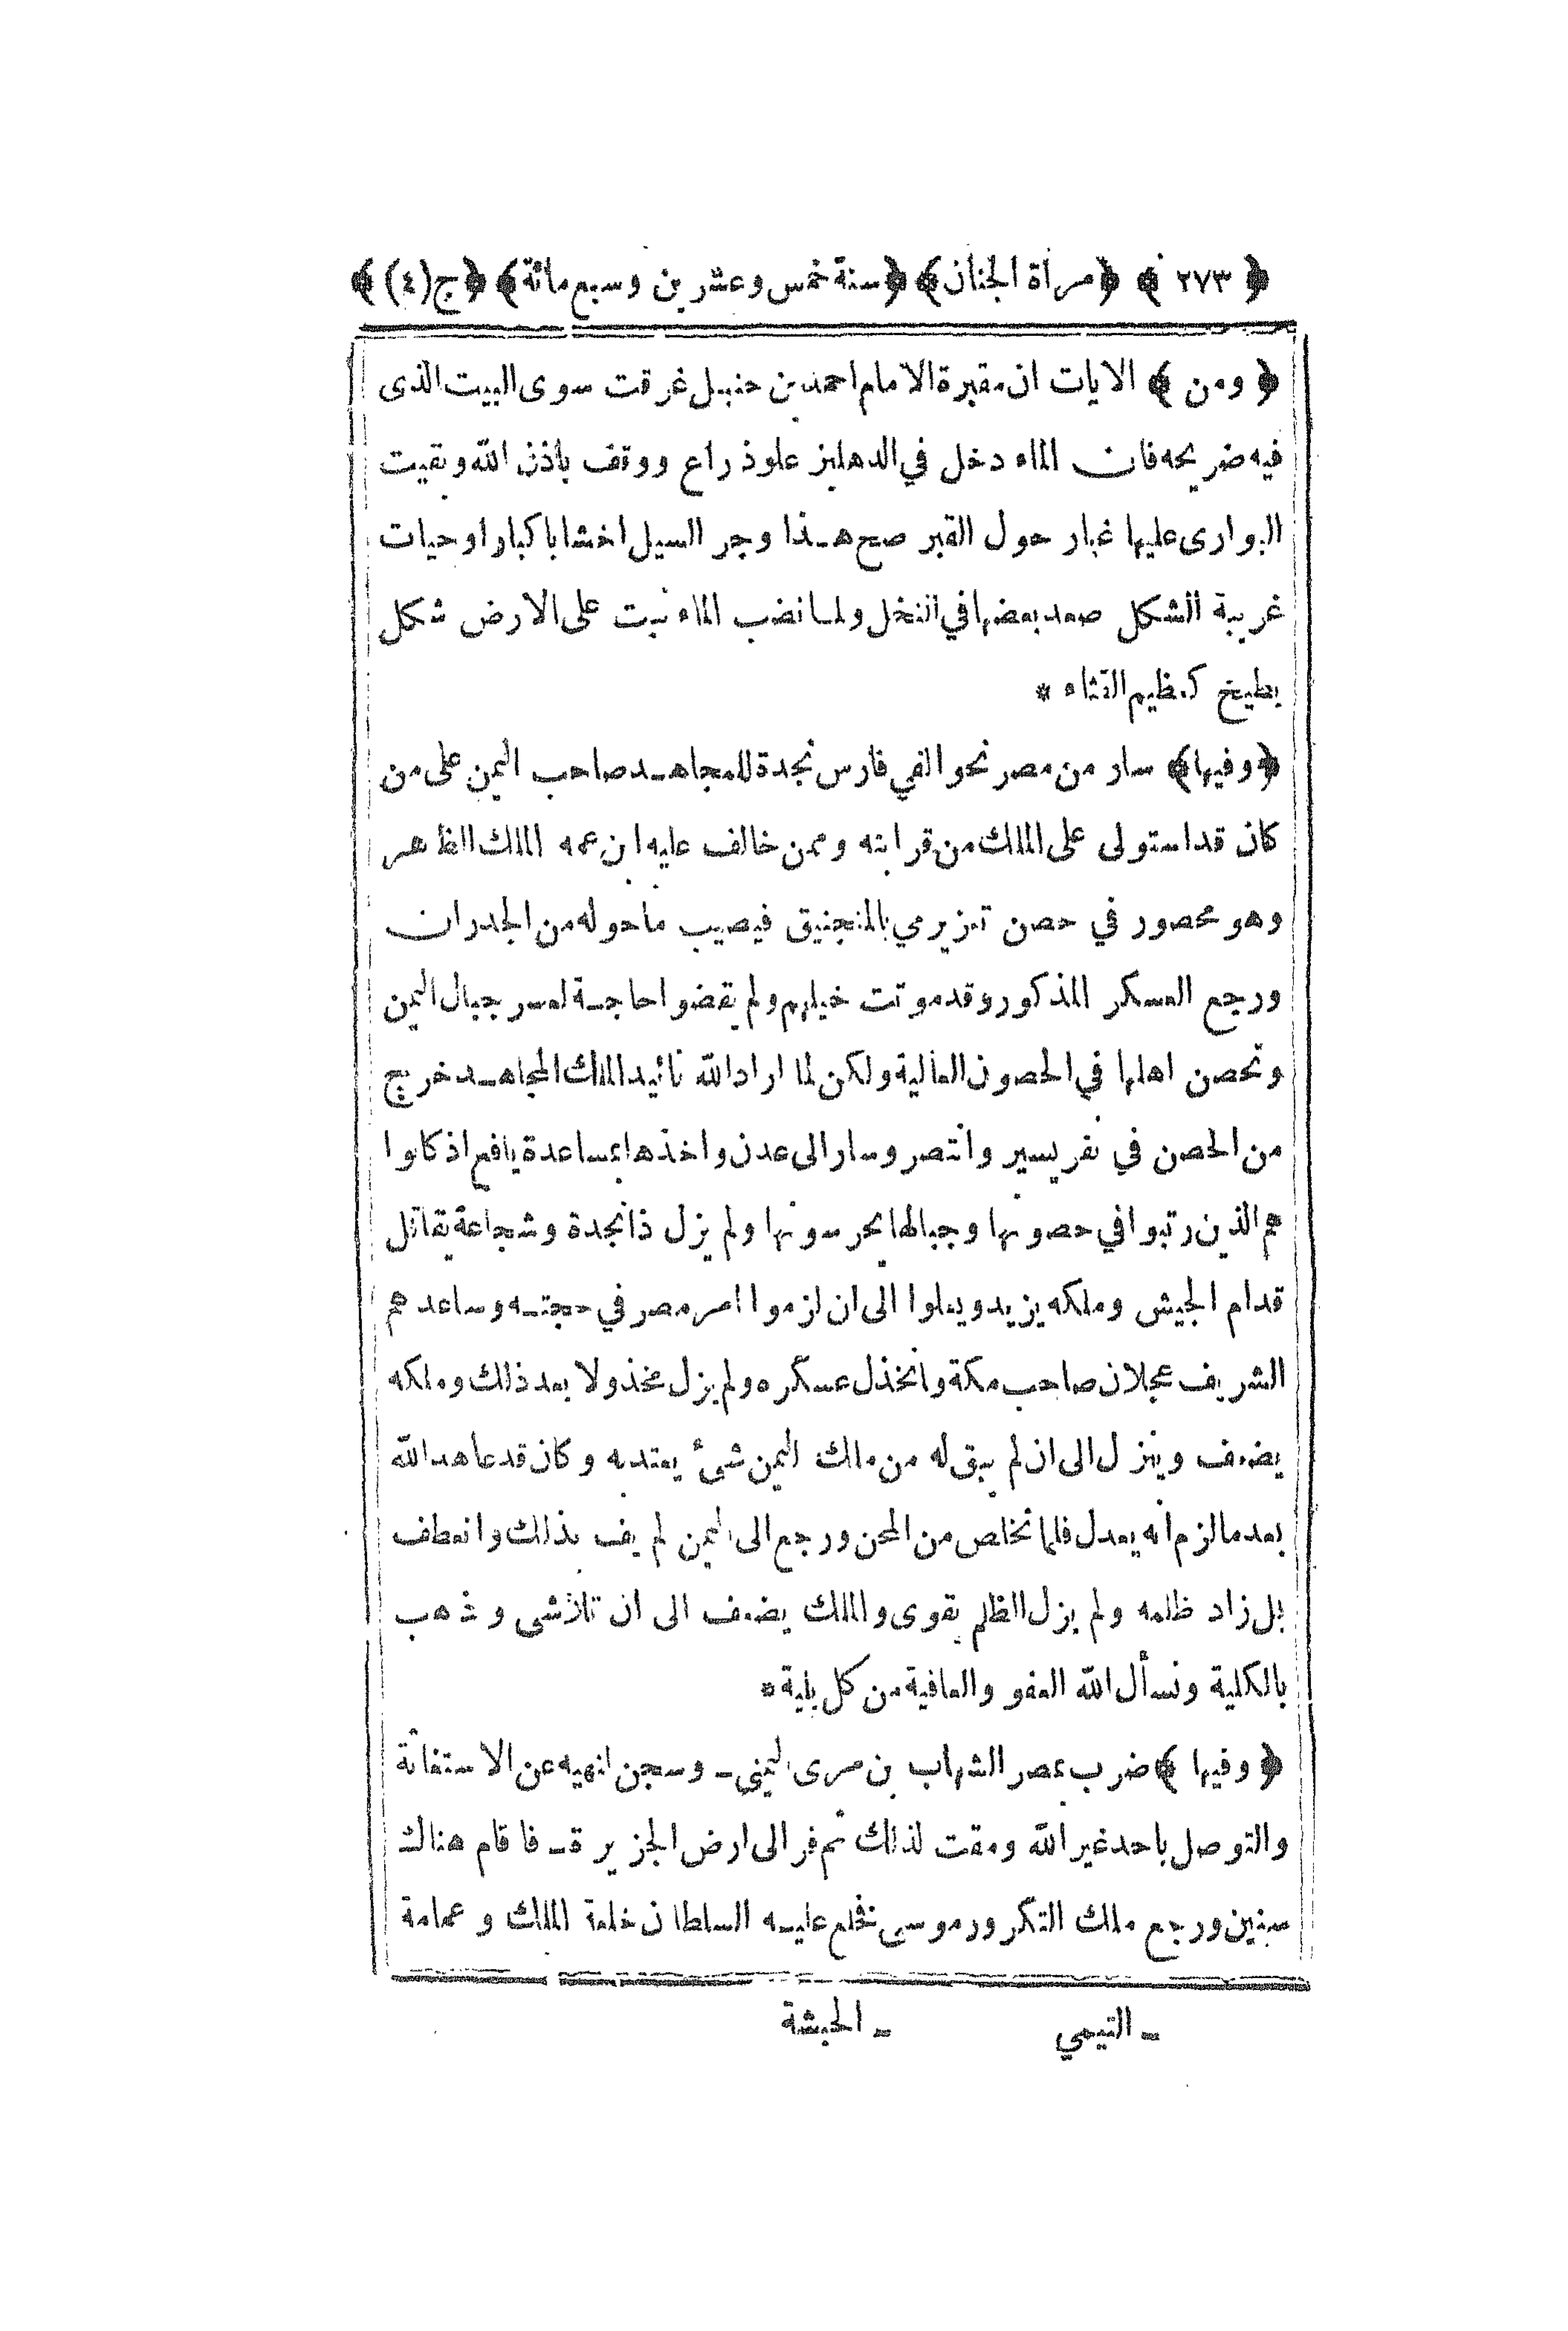 ﴿ ٢٧٣ ﴾ ﴿مرأة الجنان﴾ ﴿سنة خمس وعشرين وسبع مائة﴾ ﴿ج(٤)﴾
﴿ ومن ﴾ الايات ان مقبرة الامام احمد بن حنبل غرقت سوى البيت الذى
فيه ضريحه فان الماء دخل في الدهليز علو ذراع ووقف باذن الله وبقيت
البوارى عليها غبار حول القبر صح هـذا وجر السيل اخشابا كبارا وحيات
غريبة الشكل صعد بعضها في النخل ولما نضب الماء نبت على الارض شكل
بطيخ كعظيم القثاء *
﴿وفيها﴾ سار من مصر نحو الفي فارس نجدة للمجاهـد صاحب اليمن على من
كان قد استولى على الملك من قرابته وممن خالف عليه ابن عمه الملك الظاهر
وهو محصور في حصن تعز يرمي بالمنجنيق فيصيب ما حوله من الجدران
ورجع العسكر المذكور وقد موتت خيلهم ولم يقضوا حاجـة لعسر جبال اليمن
وتحصن اهلها في الحصون العالية ولكن لما اراد الله تائيد الملك المجاهـد خرج
من الحصن في نفر يسير وانتصر وسار الى عدن واخذها بمساعدة يافع اذ كانوا
هم الذين رتبوا في حصونها وجبالها يحرسونها ولم يزل ذا نجدة وشجاعة يقاتل
قدام الجيش وملكه يزيد ويعلوا الى ان لزموا امر مصر في حجتـه وساعدهم
الشريف عجلان صاحب مكة وانخذل عسكره ولم يزل مخذولا بعد ذلك وملكه
يضعف وينزل الى ان لم يبق له من ملك اليمن شئ يعتد به وكان قد عاهد الله
بعد ما لزم انه يعدل فلما تخلص من المحن ورجع الى اليمن لم يف بذلك وانعطف
بل زاد ظلمه ولم يزل الظلم يقوى والملك يضعف الى ان تلاشى وذهب
بالكلية ونسأل الله العفو والعافية من كل بلية *
﴿ وفيها ﴾ ضرب بمصر الشهاب بن مرى اليمني ـ وسجن لنهيه عن الاستغاثة
والتوصل باحد غير الله ومقت لذلك ثم فر الى ارض الجزيرة ـ فاقام هناك
سنين ورجع ملك التكرور موسى فخلع عليـه السلطان خلعة الملك و عمامة
ـ التيمي ـ الحبشة